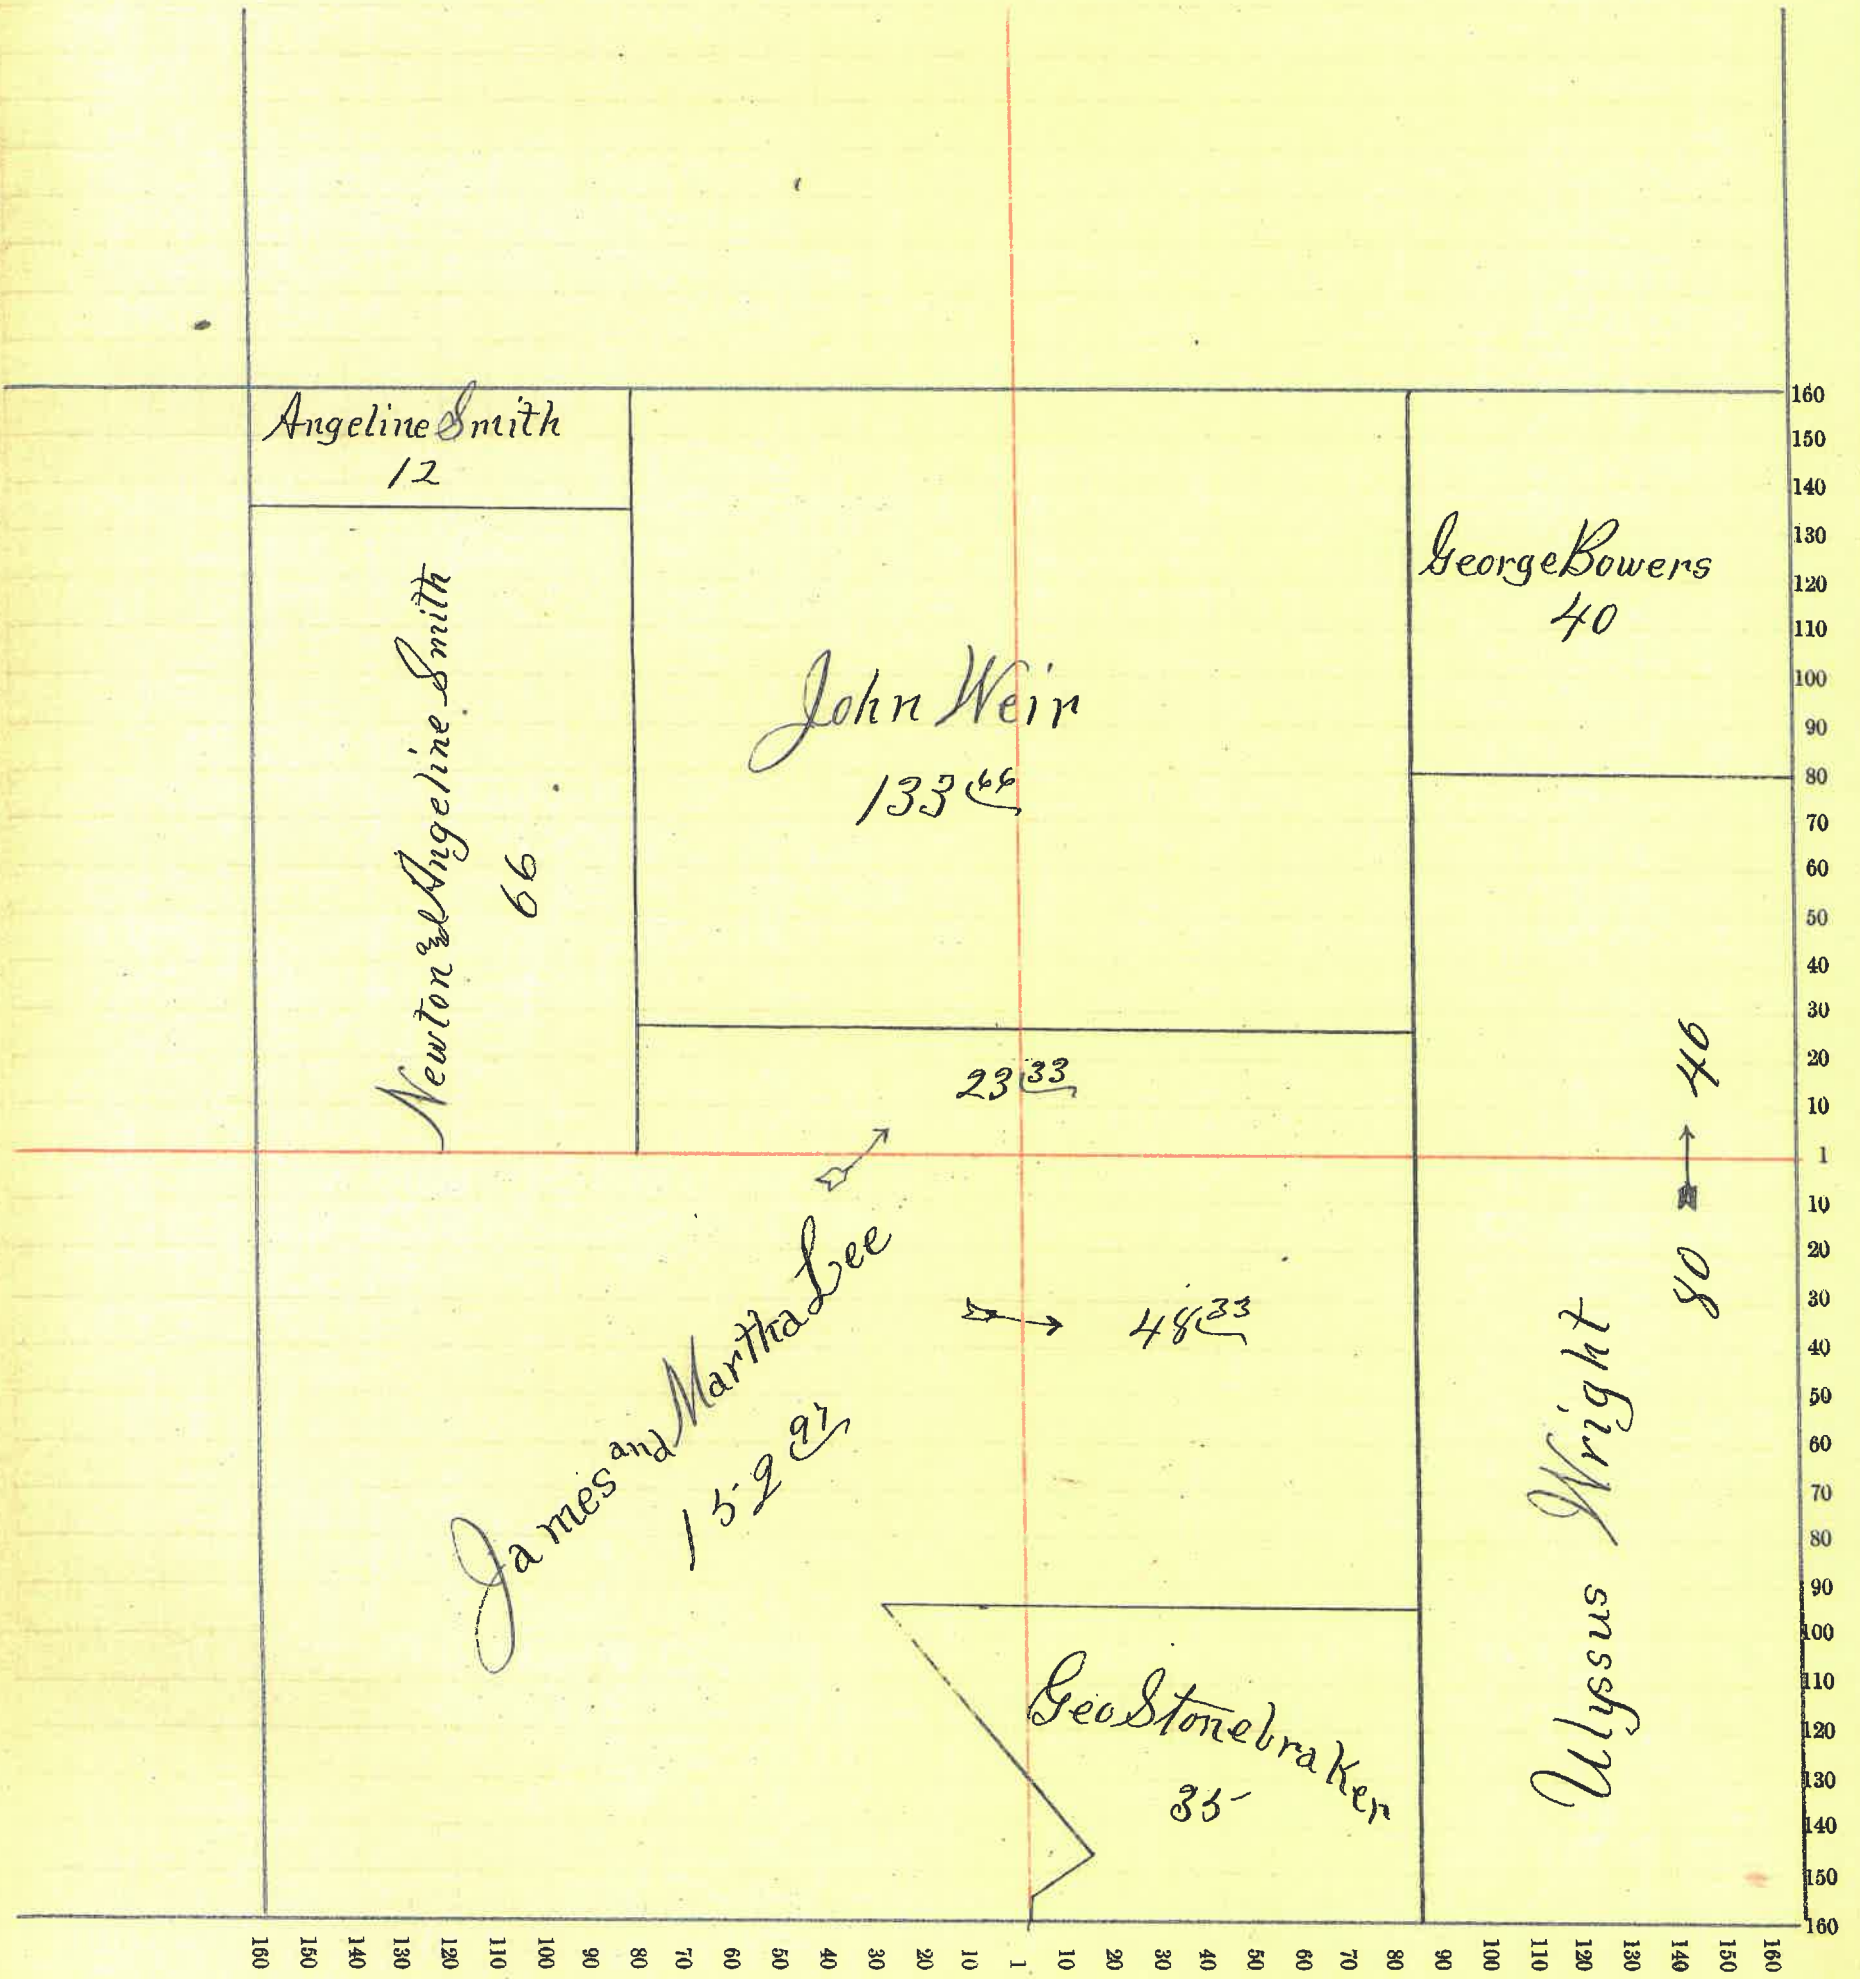 Angeline Smith
12
Newton and Angeline Smith
66
John Weir
133 66
George Bowers
40
23 33
James and Martha Lee
152 97
48 33
Geo Stonebraker
35
Ulyssus Wright
80 40
160
150
140
130
120
110
100
90
80
70
60
50
40
30
20
10
1
10
20
30
40
50
60
70
80
90
100
110
120
130
140
150
160
160 150 140 130 120 110 100 90 80 70 60 50 40 30 20 10 1 10 20 30 40 50 60 70 80 90 100 110 120 130 140 150 160